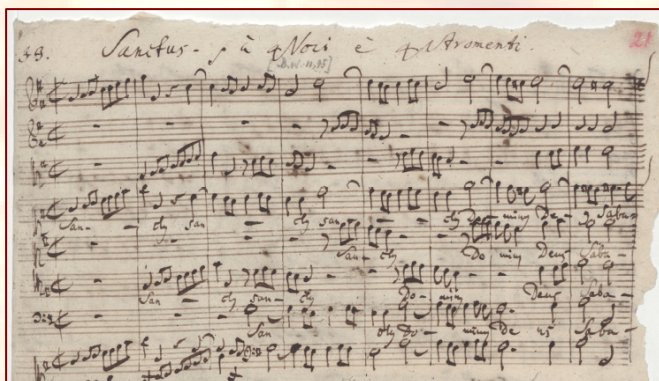 J.J. Sanctus. à 4 Voci è 4 Stromenti. 21
San- ctus san- ctus san- ctus Dominus De- us Saba-
San- ctus Do minus Deus Saba-
San- ctus san- ctus Do- minus Deus Saba-
San ctus Do- minus De us Saba-